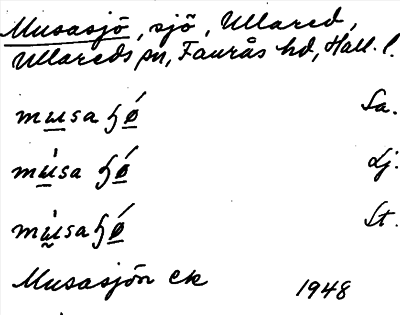 Musasjö, sjö, Ullared,
Ullareds sn, Faurås hd, Hall. l.
musa ɧǿ Sa.
musa ɧǿ Lj.
musa ɧǿ St.
Musasjön ek 1948